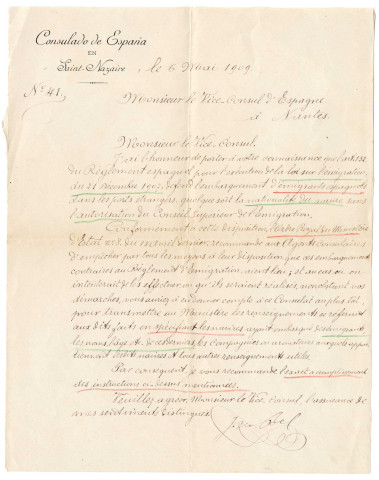 Consulado de España
EN
Saint-Nazaire
le 6 Mai 1909
Nº 41.
Monsieur le Vice-Consul d'Espagne
à Nantes.
Monsieur le Vice-Consul.
J'ai l'honneur de porter à votre connaissance que l'art.
du Règlement espagnol pour l'exécution de la loi sur l'émigration,
du 21 décembre 1907, défend l'embarquement d'émigrants espagnols
dans les ports étrangers, quelque soit la nationalité des navires, sans
l'autorisation du Conseil Supérieur de l'Emigration.
Conformément à cette disposition, l'ordre Royal du Ministère
d'Etat dernier, recommande aux Agents Consulaires
d'empêcher par tous les moyens à leur disposition que des embarquements
contraires au Règlement d'Emigration aient lieu; et au cas où on
de les effectuer ou qu'ils seraient réalisés, nonobstant vos
démarches, vous auriez à en donner compte à ce Consulat au plus tôt
pour transmettre au Ministère les renseignements se référant
aux dits faits en spécifiant les navires ayant embarqué des émigrants,
les noms, âge et de ces derniers, les Compagnies ou armateurs auxquels
les dits navires et tous autres renseignements utiles.
Par conséquent, je vous recommande l'exact accomplissement
des instructions ci-dessus mentionnées.
Veuillez agréer, Monsieur le Vice-Consul, l'assurance de
mes sentiments distingués.